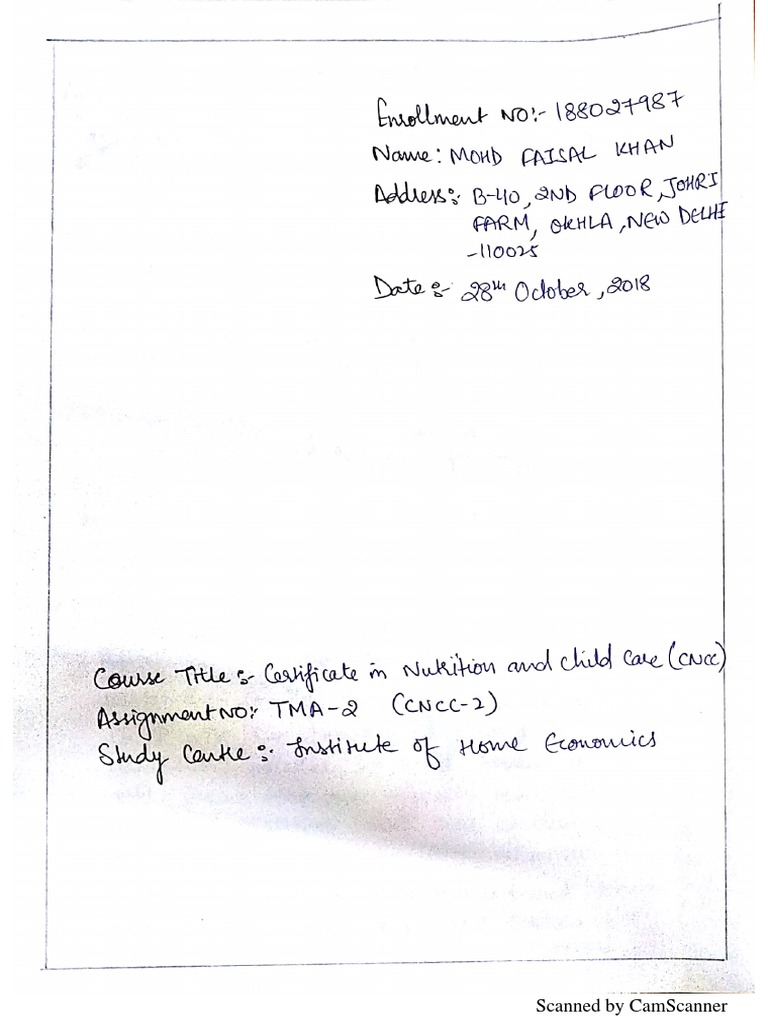 Enrollment NO:- 188027987
Name: MOHD FAISAL KHAN
Address:- B-40, 2ND FLOOR, JOHRI
FARM, OKHLA, NEW DELHI
-110025
Date :- 28th October, 2018
Course Title :- Certificate in Nutrition and Child Care (CNCC)
Assignment NO:- TMA-2 (CNCC-2)
Study Centre :- Institute of Home Economics
Scanned by CamScanner